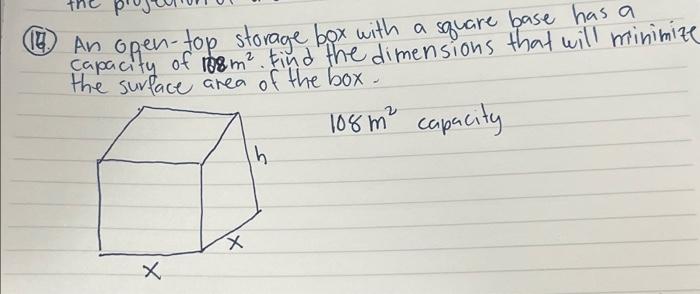 the
18. An open-top storage box with a square base has a
capacity of 108m². Find the dimensions that will minimize
the surface area of the box.
108m² capacity
h
x
x